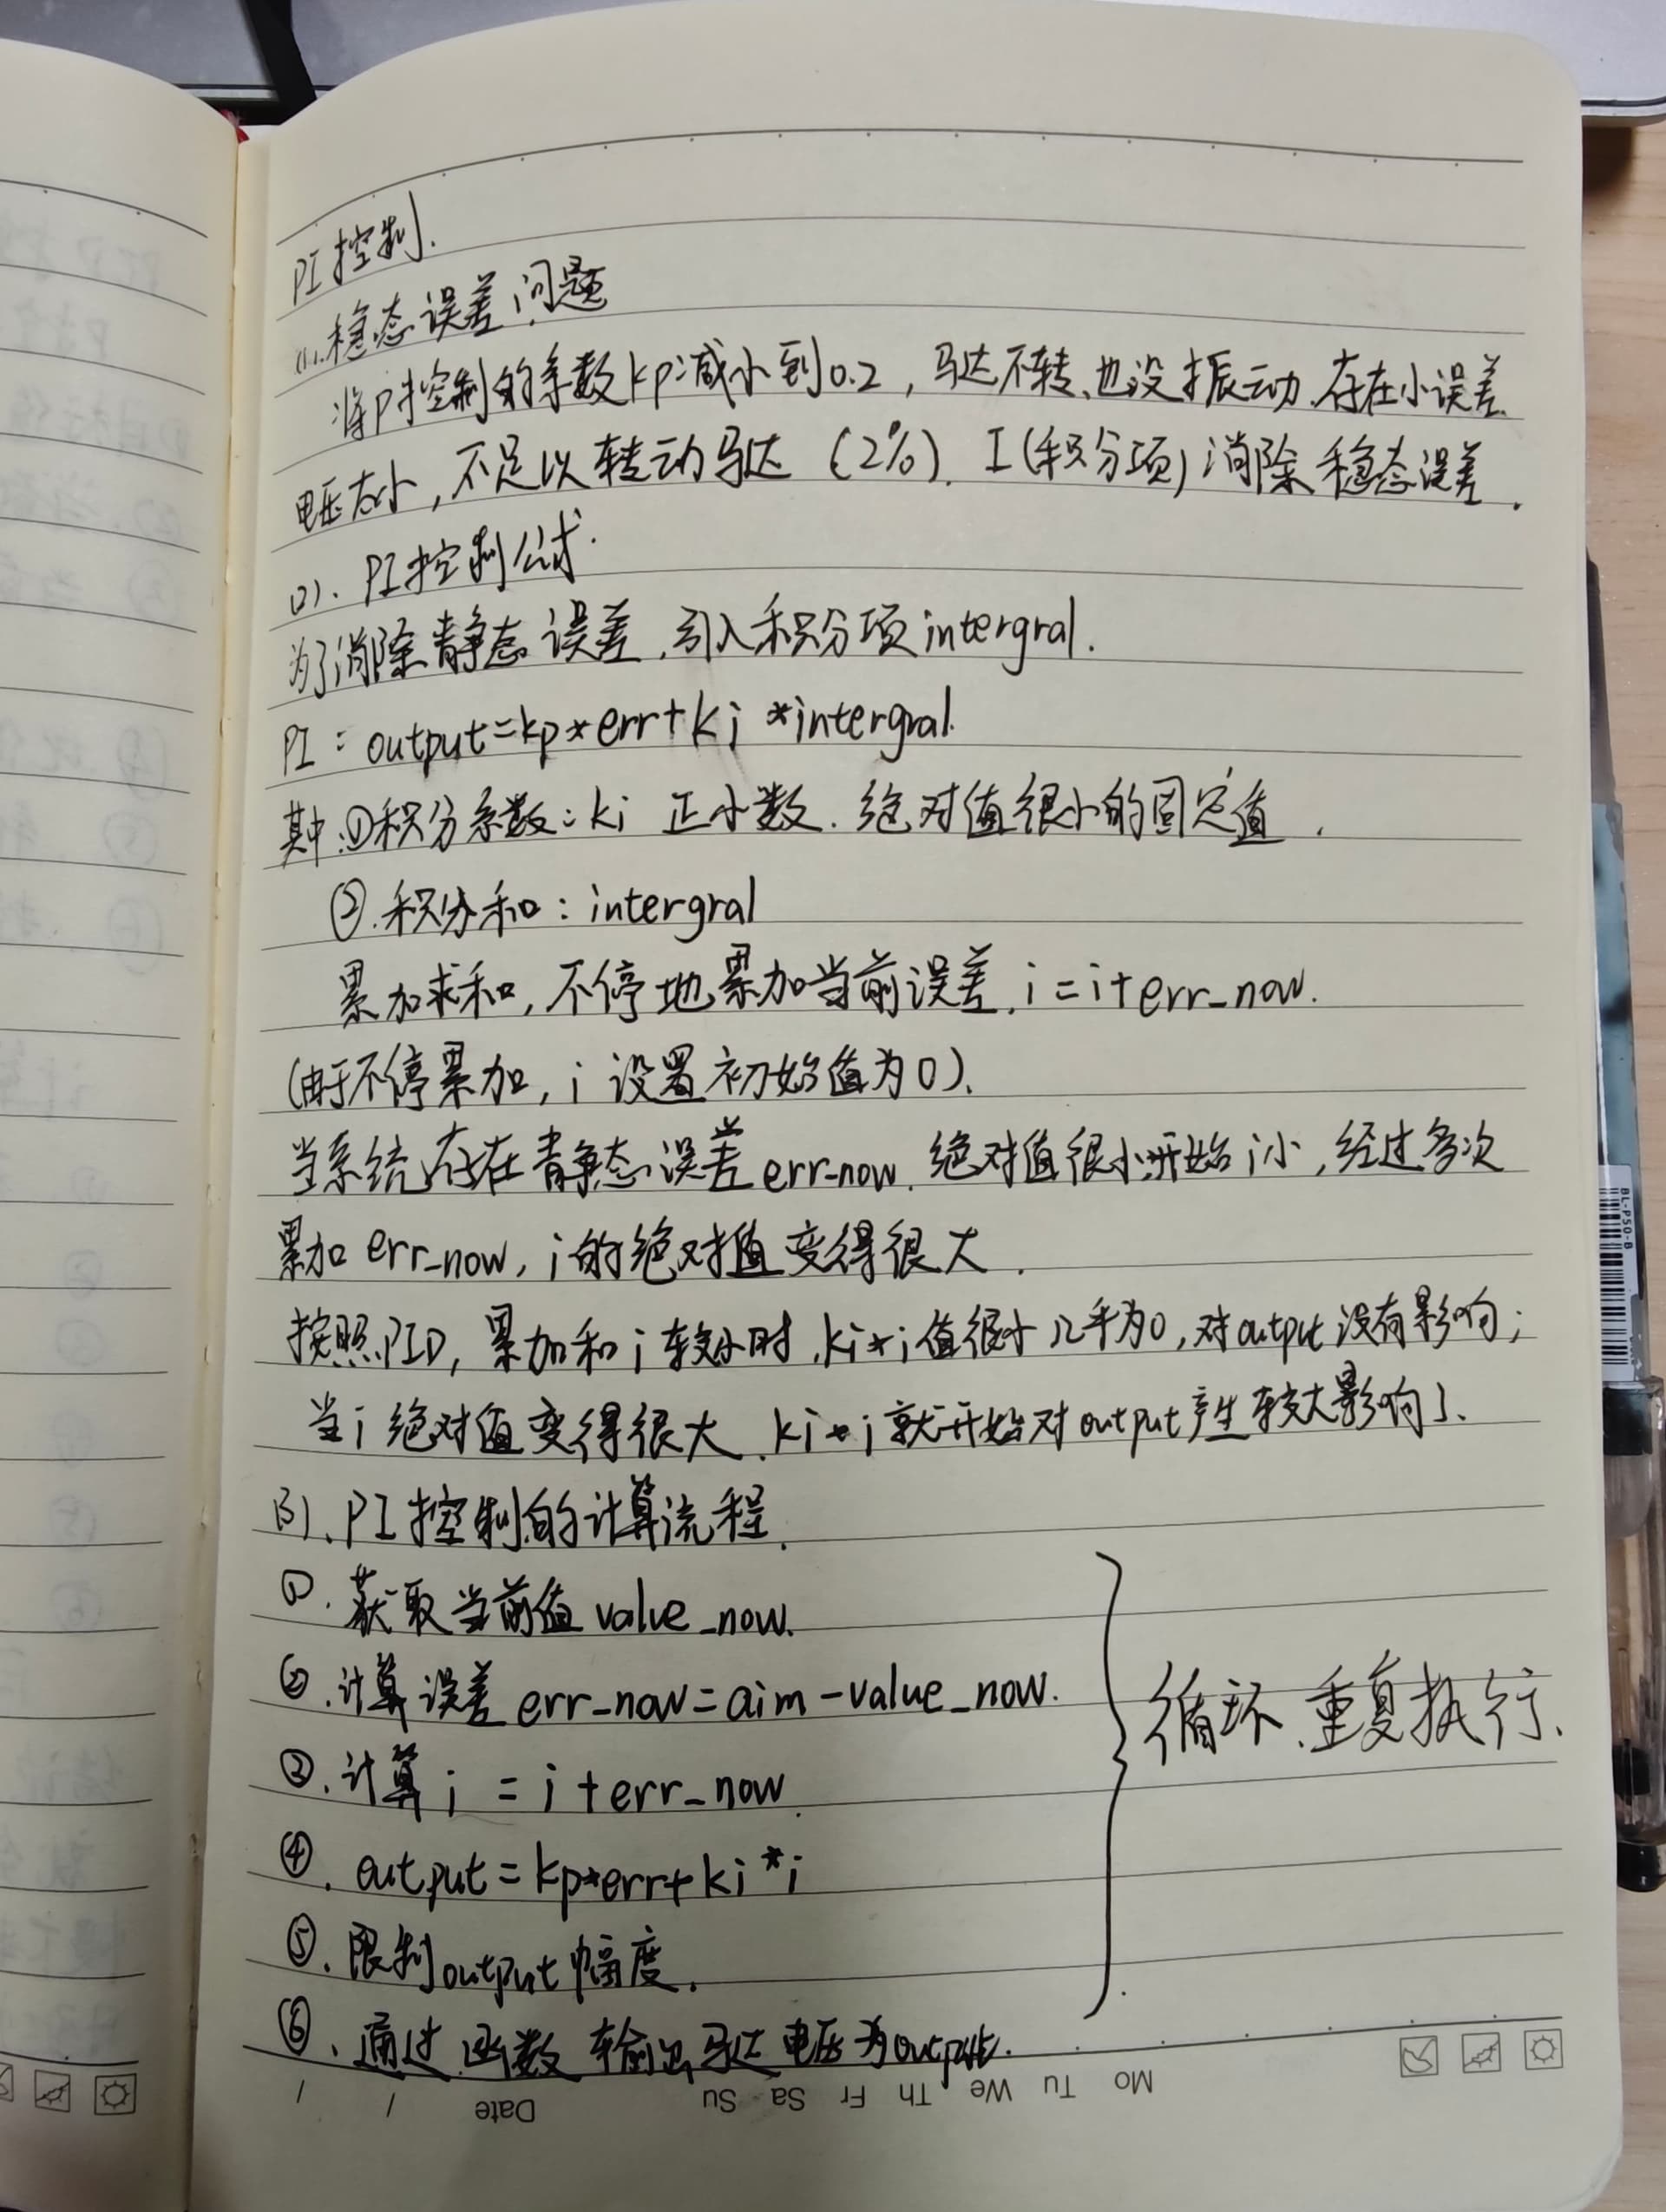 PI控制.
(1).稳态误差问题
将P控制的系数kp减小到0.2，马达不转、也没振动.存在小误差.
电压太小，不足以转动马达（2%）. I(积分项)消除稳态误差.
(2). PI控制公式.
为了消除静态误差,引入积分项intergral.
PI: output=kp*err+ki *intergral.
其中:①积分系数:ki 正小数. 绝对值很小的固定值.
②.积分和: intergral
累加求和,不停地累加当前误差. i=i+err_now.
(由于不停累加, i 设置初始值为0).
当系统存在静态误差err_now. 绝对值很小.开始i小,经过多次
累加err_now, i的绝对值变得很大.
按照PID, 累加和i较小时,ki*i值很小几乎为0,对output没有影响;
当i绝对值变得很大、ki*i就开始对output产生较大影响了.
(3).PI控制的计算流程.
①.获取当前值value_now.
②.计算误差err_now=aim-value_now.
③.计算i = i+err_now.
④. output=kp*err+ki*i
⑤.限制output幅度.
⑥.通过函数输出马达电压为output.
循环、重复执行、
Date Su Sa Fr Th We Tu Mo
BL-P50-B